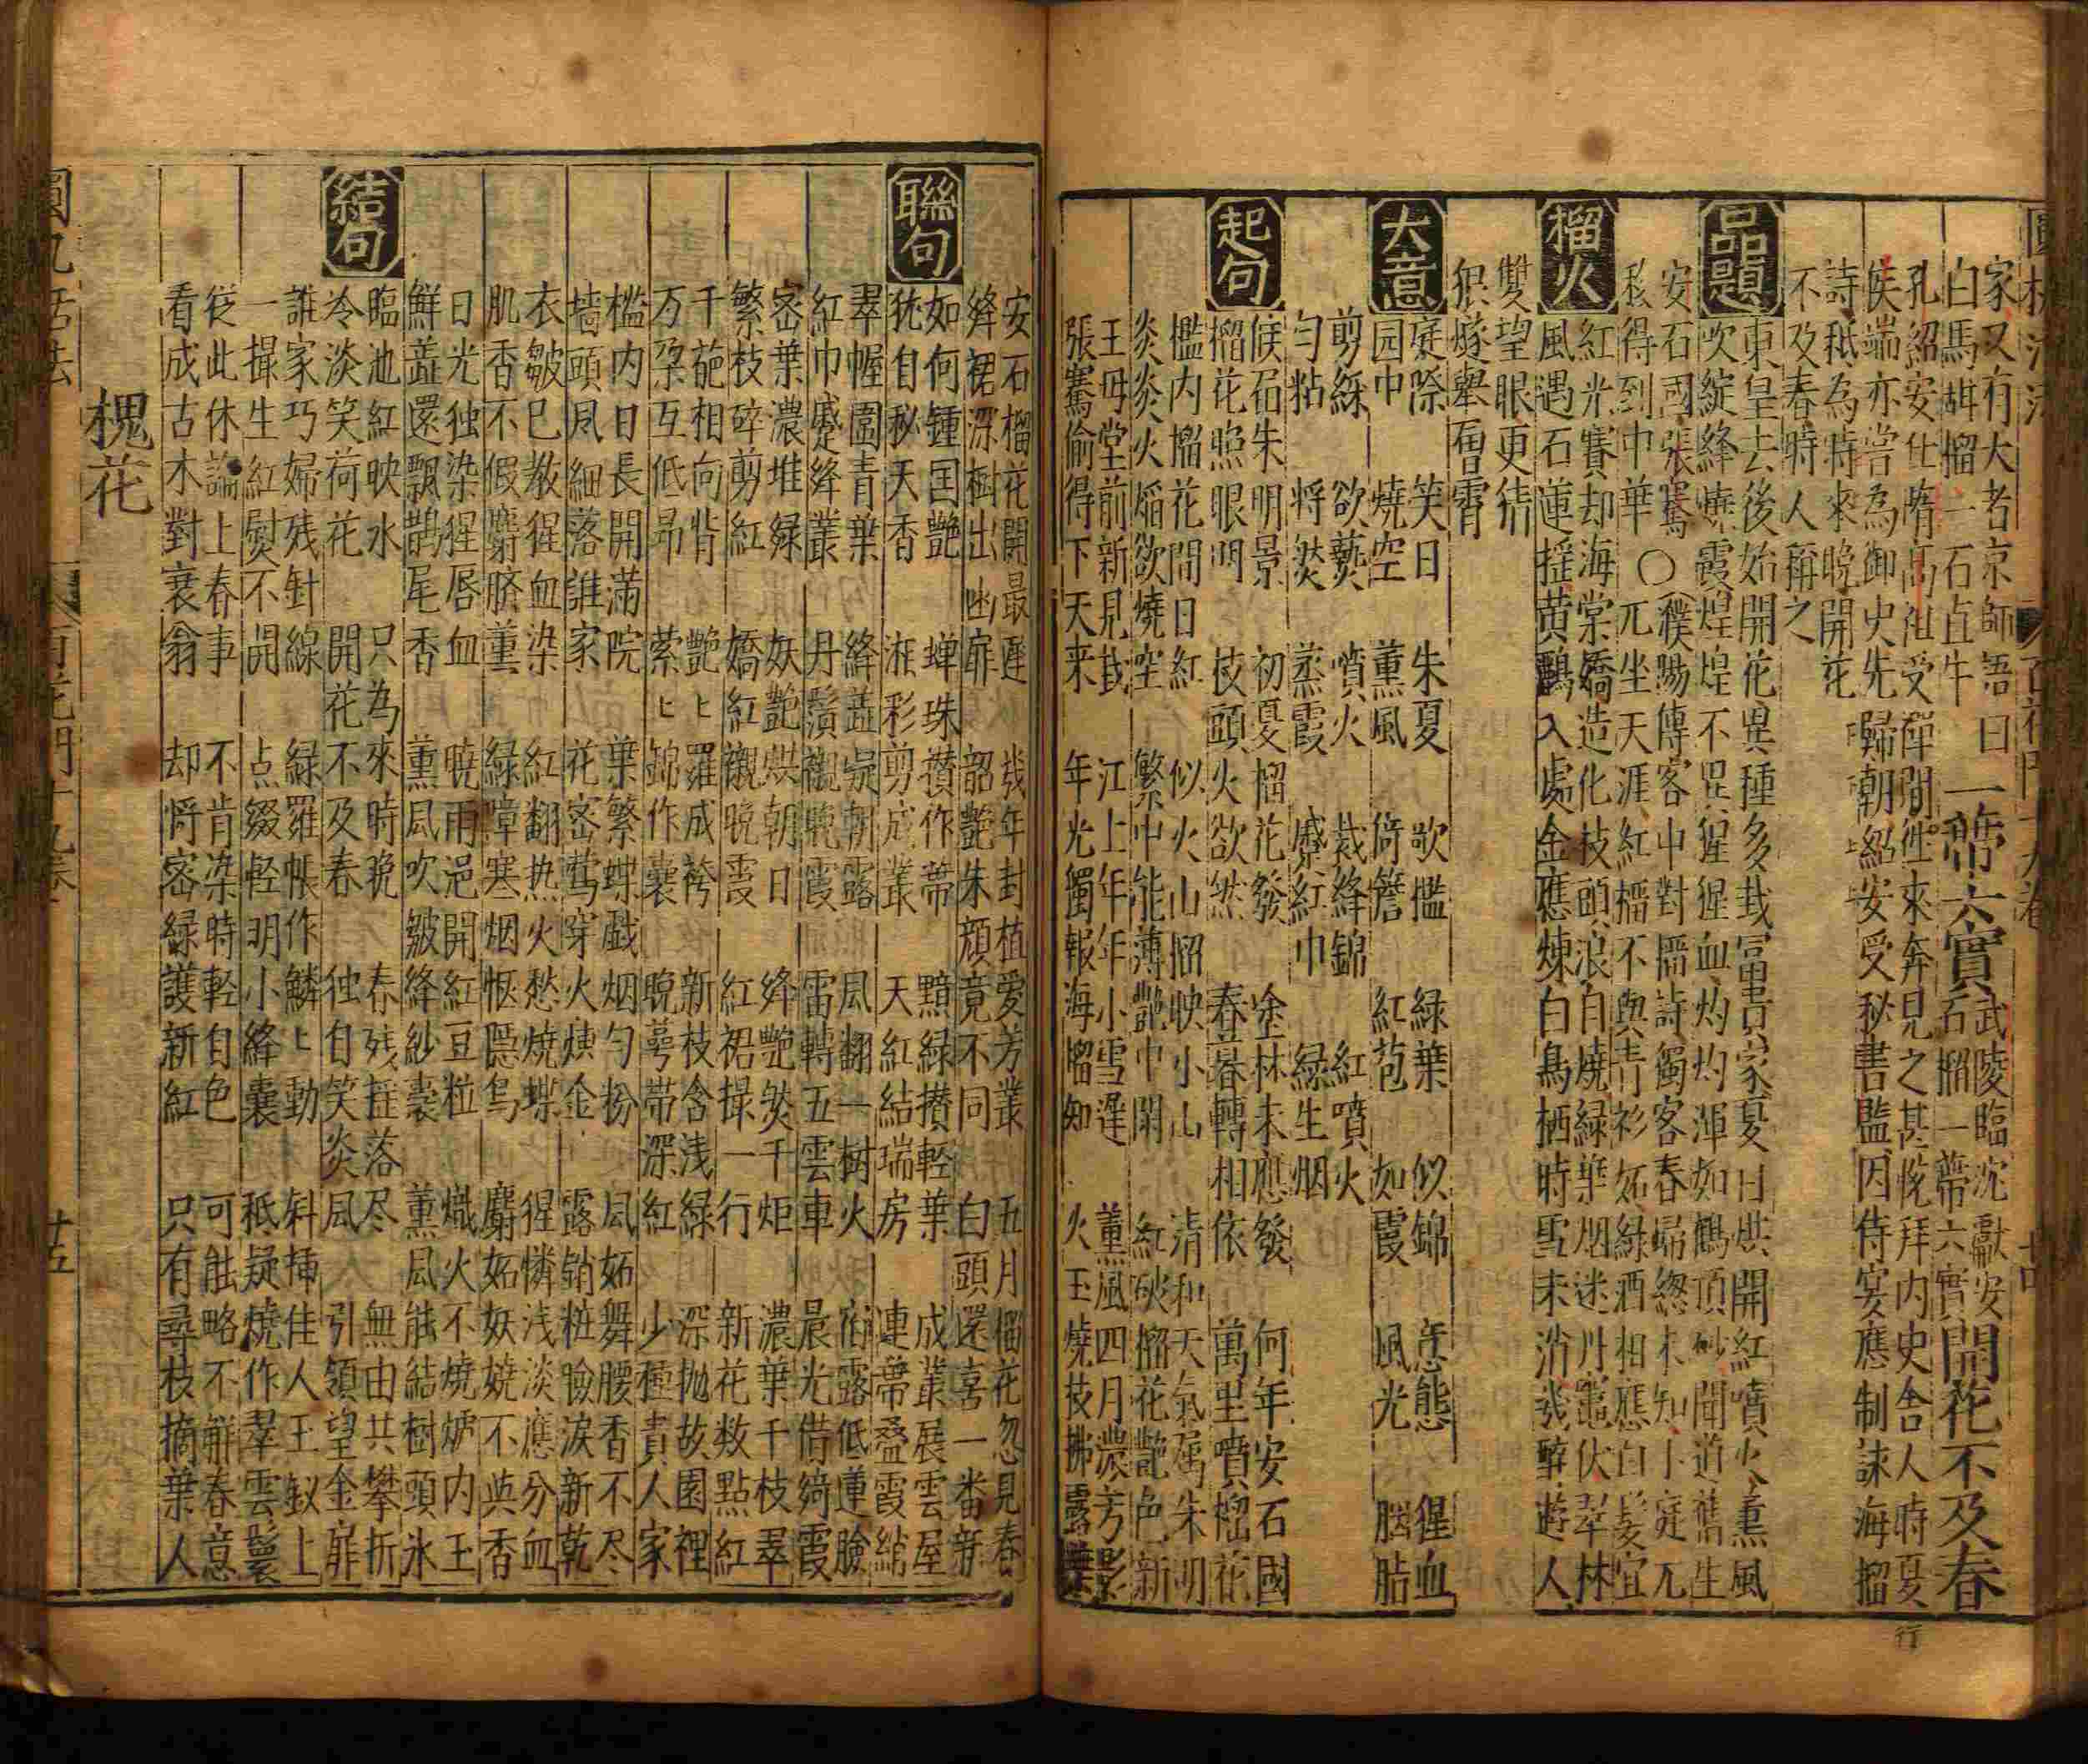 圓機活法 百花門十九卷 廿四
家又有大者京師語曰
白馬甜榴一石直牛
一蒂六實
武陵臨沅獻安
石榴一蒂六實
開花不及春
孔紹安仕隋高祖受禪間徃來奔見之甚恱拜内史舍人時夏
侯端亦嘗為御史先歸朝紹安受秘書監因侍宴應制詠海榴
詩秪為時來晚開花
不及春時人稱之
品題
東皇去後始開花異種多栽冨貴家夏日烘開紅噴火薫風
吹綻絳燒霞煌煌不足猩猩血灼灼渾如鶴頂砂聞道舊生
安石國張騫〇濮陽傳客中對榴詩獨客春歸緫未知小庭兀
移得到中華 兀坐天涯紅榴不與青衫妬綠酒相應白髮宜
榴火
紅光賽却海棠嬌造化枝頭浪自燒綠葉烟迷丹竈伏翠林
風遇石蓮揺黄鸝入處金應煉白鳥栖時雪未消㡬醉遊人
雙望眼更猜
狠燧舉霄
大意
庭際 笑日 朱夏 吹檻 綠葉 似錦 意態 猩血
园中 燒空 薫風 倚簷 紅苞 如霞 風光 腦脂
剪綵 欲爇 噴火 裁絳錦 紅噴火
勻粘 将焚 蒸霞 蹙紅巾 綠生烟
起句
候召朱明景 初夏榴花發 塗林未應發 何年安石國
榴花照眼明 枝頭火欲然 春暮轉相依 萬里噴榴花
檻内榴花間日紅 似火山榴映小山 清和天氣属朱明
炎炎火熖欲燒空 繁中能薄艷中閑 紅䃲榴花艷色新
王母堂前新見栽 江上年年小雪遲 薫風四月濃芳影
張騫偷得下天来 年光獨報海榴知 火玉燒枝拂露華
安石榴花開最遲 㡬年封植愛芳叢 五月榴花忽見春
絳裙深樹出幽扉 韶艶朱顔竟不同 白頭還喜一番新
聯句
如何鍾国艷 蟬珠攅作蒂 黯綠攅輕葉 成叢展雲屋
犹自秘天香 湘彩剪成叢 天紅結瑞房 連蒂叠霞綃
翠幄園青葉 絳蕋凝朝露 風翻一樹火 銜露低蓮臉
紅巾蹙絳叢 丹鬚襯晩霞 雷轉五雲車 晨光借綺霞
宻葉濃堆綠 妖艶烘朝日 絳艶焚千炬 濃葉千枝翠
繁枝碎剪紅 嬌紅襯晩霞 紅裙撮一行 新花数點紅
千葩相向背 艶〻羅成袴 新枝含浅綠 深抛故園裡
万朶互低昂 萦〻錦作囊 晚萼帶深紅 少種貴人家
檻内日長開满院 葉繁蝶戯烟勻粉 風妬舞腰香不尽
墙頭風細落誰家 花宻鶯穿火煉金 露銷粧臉淚新乾
衣皺已教猩血染 紅翻热火愁燒蝶 猩憐浅淡應分血
肌香不假麝臍薰 綠障寒烟恠隠鳥 麝妬妖嬈不與香
日光独染猩唇血 曉雨浥開紅豆粒 熾火不燒炉内玉
鮮蕋還飄鵲尾香 薫風吹皴絳紗囊 薫風能結樹頭氷
結句
臨池紅映水 只為來時晚 春残揺落尽 無由共攀折
冷淡笑荷花 開花不及春 独自笑炎風 引領望金扉
誰家巧婦残針線 綠羅帳作鱗〻動 斜揷佳人玉釵上
一撮生紅熨不開 点綴輕明小絳囊 秪疑燒作翠雲鬟
從此休論上春事 不肯染時輕自色 可能略不觧春意
看成古木對衰翁 却將宻綠護新紅 只有尋枝摘葉人
槐花
圓機活法 百花門十九卷 廿五